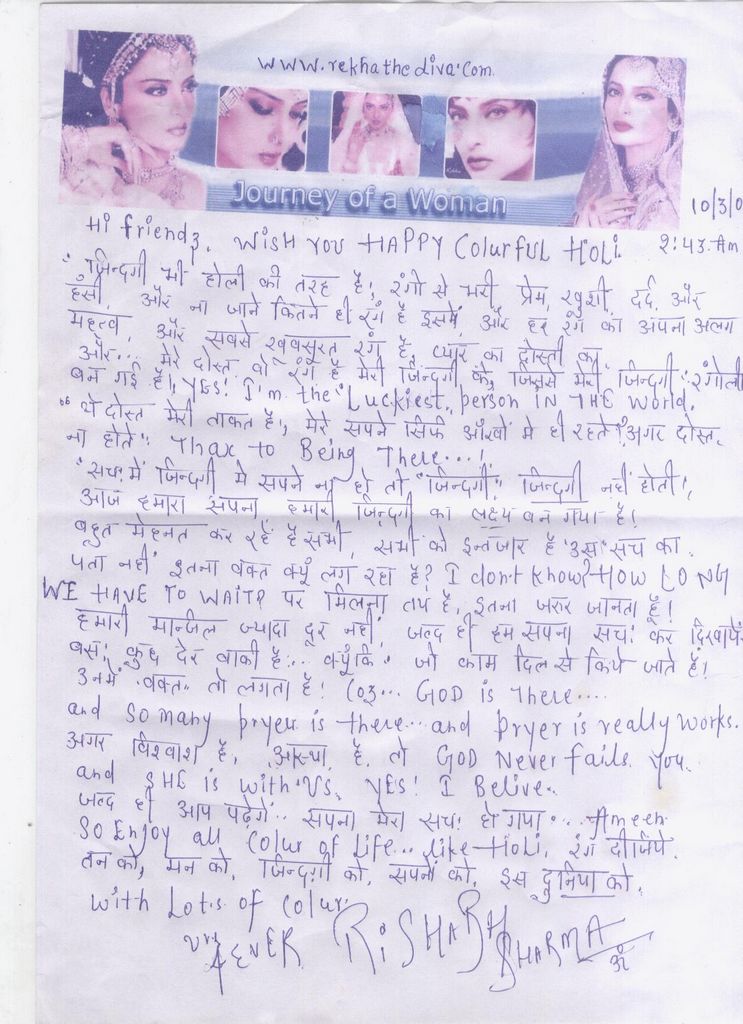 www.rekhathediva.com
Journey of a Woman
10/3/0
2:43 Am
Hi friendz, WISH YOU HAPPY Colourful Holi.
"जिन्दगी भी होली की तरह है", रंगो से भरी, प्रेम, खुशी, दर्द, और
हंसी, और ना जाने कितने ही रंग है इसमें, और हर रंग का अपना अलग
महत्व, और सबसे खूबसूरत रंग है, प्यार का दोस्ती का,
और... मेरे दोस्त वो रंग है मेरी जिन्दगी के, जिनसे मेरी जिन्दगी रंगोली
बन गई है!, YES! I'm the "Luckiest" person IN THE World.
"ये दोस्त मेरी ताकत है", मेरे सपने सिर्फ आँखों मे ही रहते, अगर दोस्त
ना होते". Thax to Being There...!
"सच में जिन्दगी मे सपने ना हो तो "जिन्दगी" जिन्दगी नही होती",
आज हमारा सपना हमारी जिन्दगी का लक्ष्य बन गया है!
बहुत मेहनत कर रहें है सभी, सभी को इन्तजार है "उस" सच का.
पता नहीं इतना वक्त क्यूँ लग रहा है? I dont know? HOW LONG
WE HAVE TO WAIT? पर मिलना तय है, इतना जरूर जानता हूँ!
हमारी मान्जिल ज्यादा दूर नही, जल्द ही हम सपना सच कर दिखायें
बस! कुछ देर बाकी है... क्यूँकि जो काम दिल से किये जाते है!
उनमें वक्त तो लगता है! Coz... GOD is There....
and so many pryer is there... and pryer is really works.
अगर विश्वाश है, आस्था है, तो GOD Never fails You.
and SHE is with US, YES! I Belive.
जल्द ही आप पढ़ेगें... सपना मेरा सच हो गया... Ameen
SO Enjoy all Colur of Life... like Holi, रंग दीजिये
तन को, मन को, जिन्दगी को, सपनो को, इस दुनिया को.
with Lots of Colur
RISHABH SHARMA
ॐ